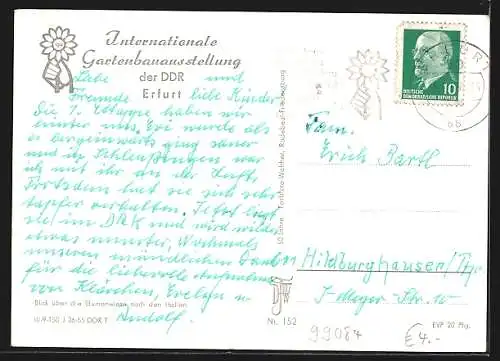 Internationale
Gartenbauausstellung
der DDR
Erfurt
Liebe und
Freunde liebe Kinder
Die 1. Etappe haben wir
hinter uns. Evi wurde als
es bergenwärts ging
und in Schleusingen war
ich mit ihr an der Luft.
Potsdam hat sie sich sehr
tapfer erhalten. Jetzt liegt
sie im DRK und wird wieder
etwas munter. Nochmals
unseren mündlichen Dank
für die liebevolle Aufnahme
von Klärchen, Evelyn u.
Rudolf.
Blick über die Blumenwiese nach den Hallen
III/9-150 J 26-65 DDR T
50 Jahre Technoto-Walther, Radebeul-Friedewald
Nr. 152
DEUTSCHE
DEMOKRATISCHE REPUBLIK
10
Fam.
Erich Bartl
Hildburghausen/Thür
I-Meyer-Str. 10
EVP 20 Pfg.
99087
€ 4.-